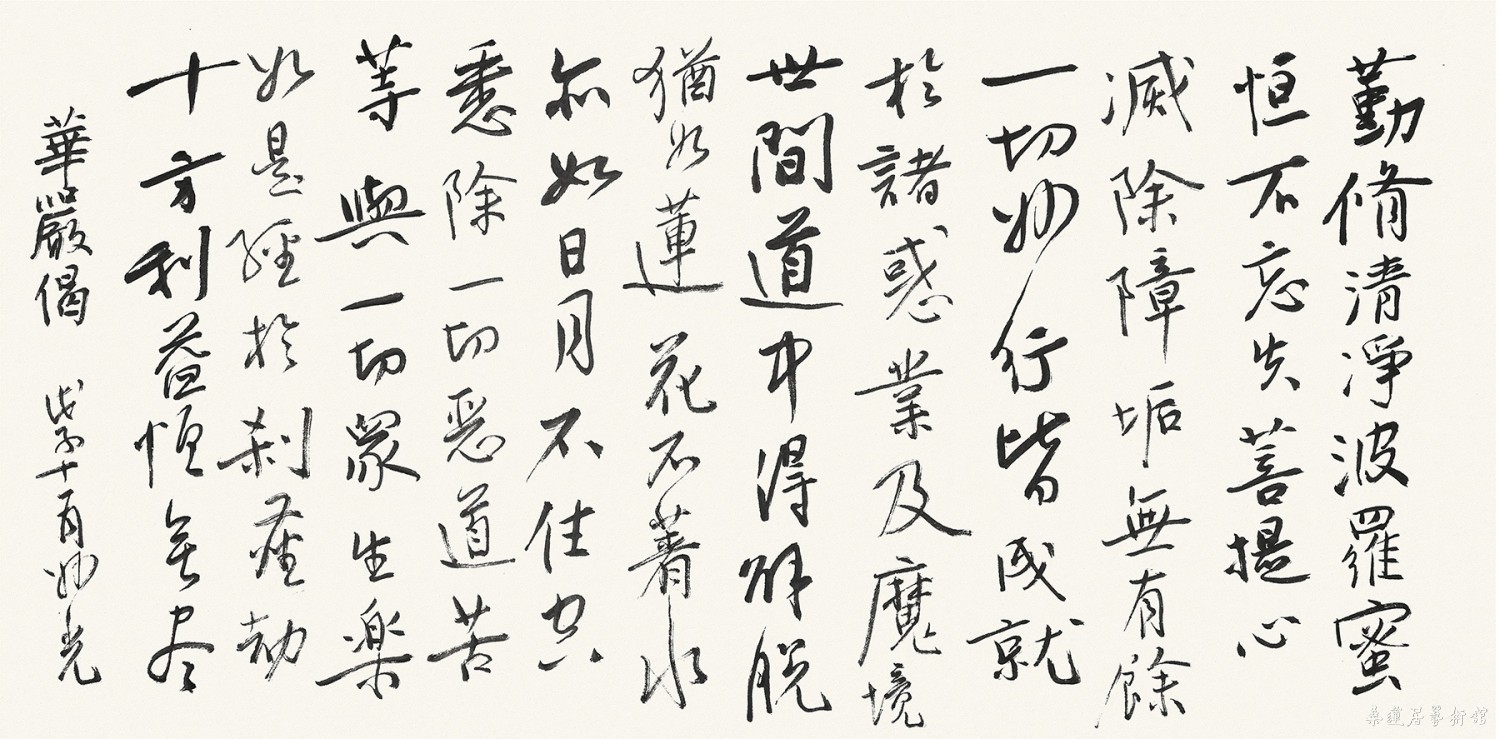 勤脩清淨波羅蜜
恒不忘失菩提心
滅除障垢無有餘
一切妙行皆成就
於諸惑業及魔境
世間道中得解脫
猶如蓮花不著水
亦如日月不住空
悉除一切惡道苦
等與一切眾生楽
如是經於剎塵劫
十方利益恒無尽
華嚴偈 戊子十月妙光
桑蓮居藝術館